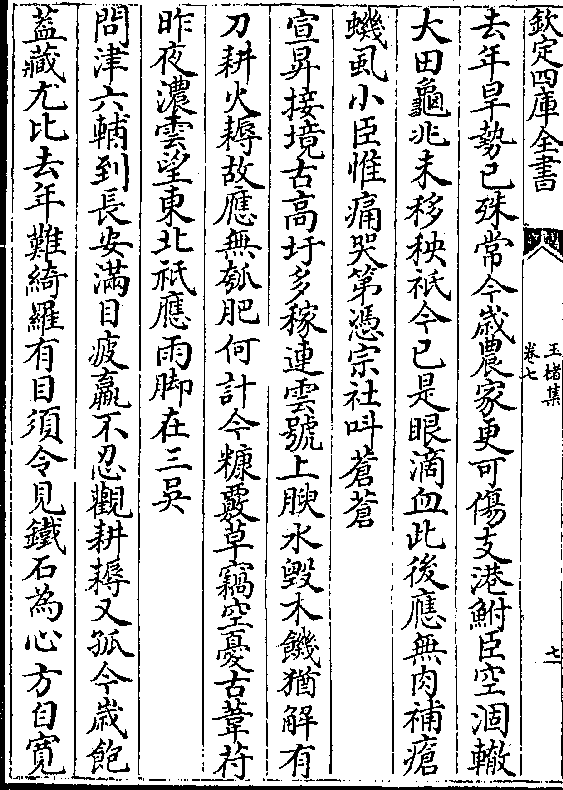 欽定四庫全書
玉楮集
卷七
七
去年旱勢已殊常今歲農家更可傷支港鮒臣空涸轍
大田龜兆未移秧祇今已是眼滴血此後應無肉補瘡
蟣虱小臣惟痛哭第憑宗社呌蒼蒼
宣昇接境古高圩多稼連雲號上腴水毀木饑猶解有
刀耕火耨故應無瓠肥何計今糠覈草竊空憂古萑苻
昨夜濃雲望東北祇應雨脚在三吳
問津六輔到長安滿目疲羸不忍觀耕耨又孤今歲飽
葢藏尤比去年難綺羅有目須令見鐵石為心方自寛